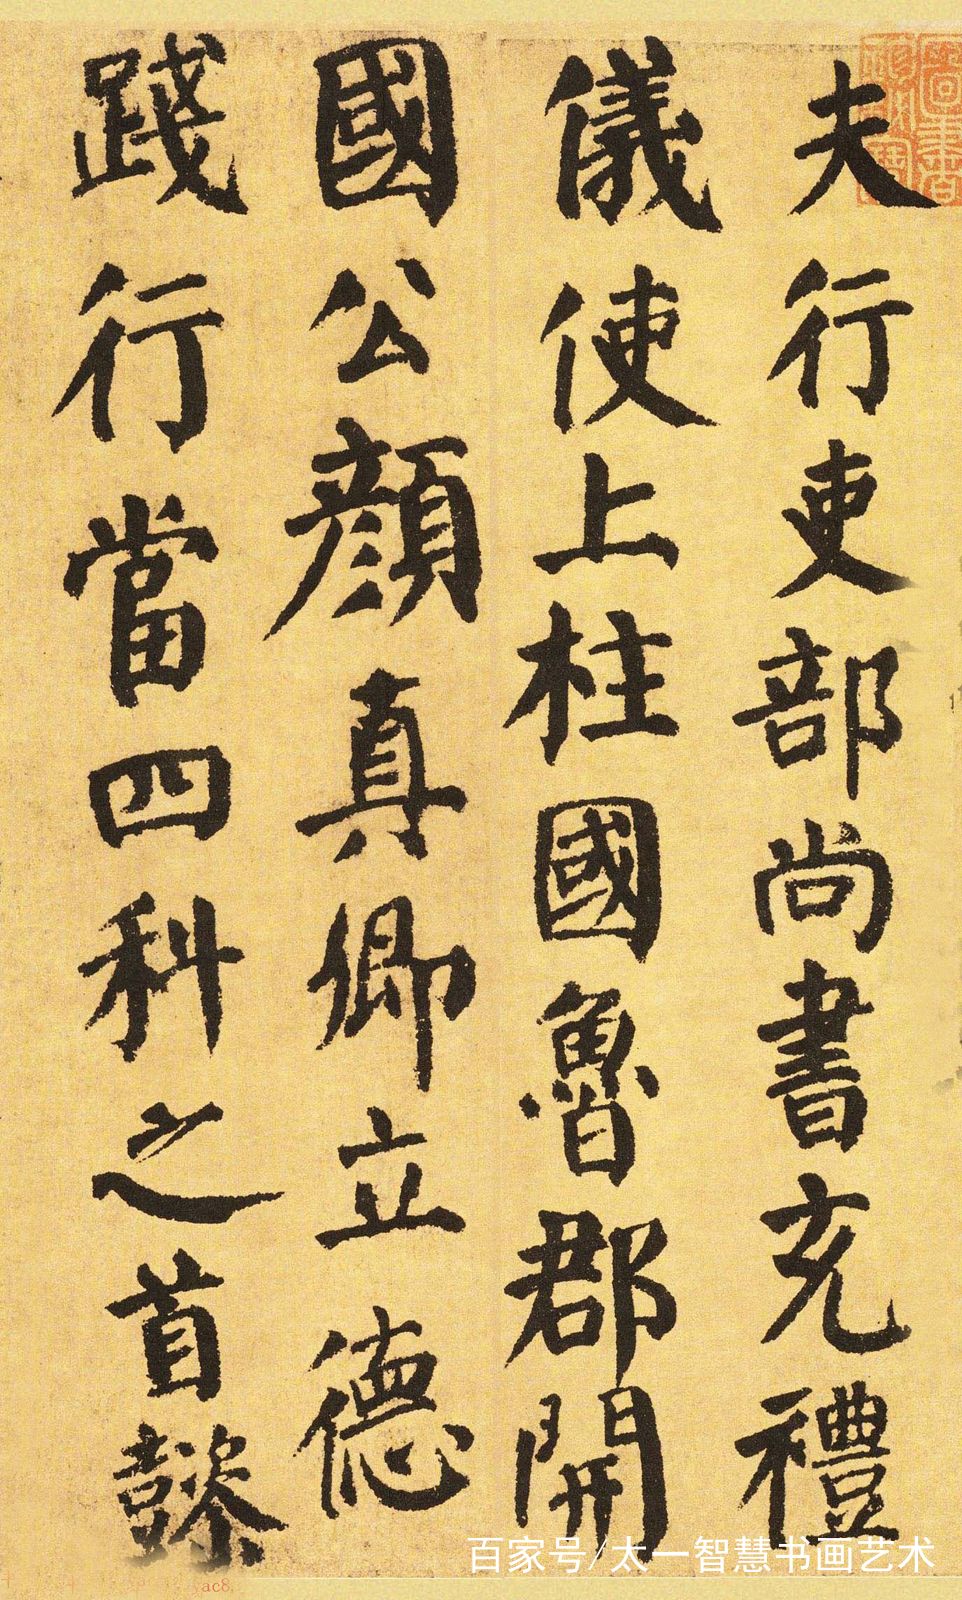 夫行吏部尚書充禮
儀使上柱國魯郡開
國公顏真卿立德
踐行當四科之首懿
百家号/太一智慧书画艺术